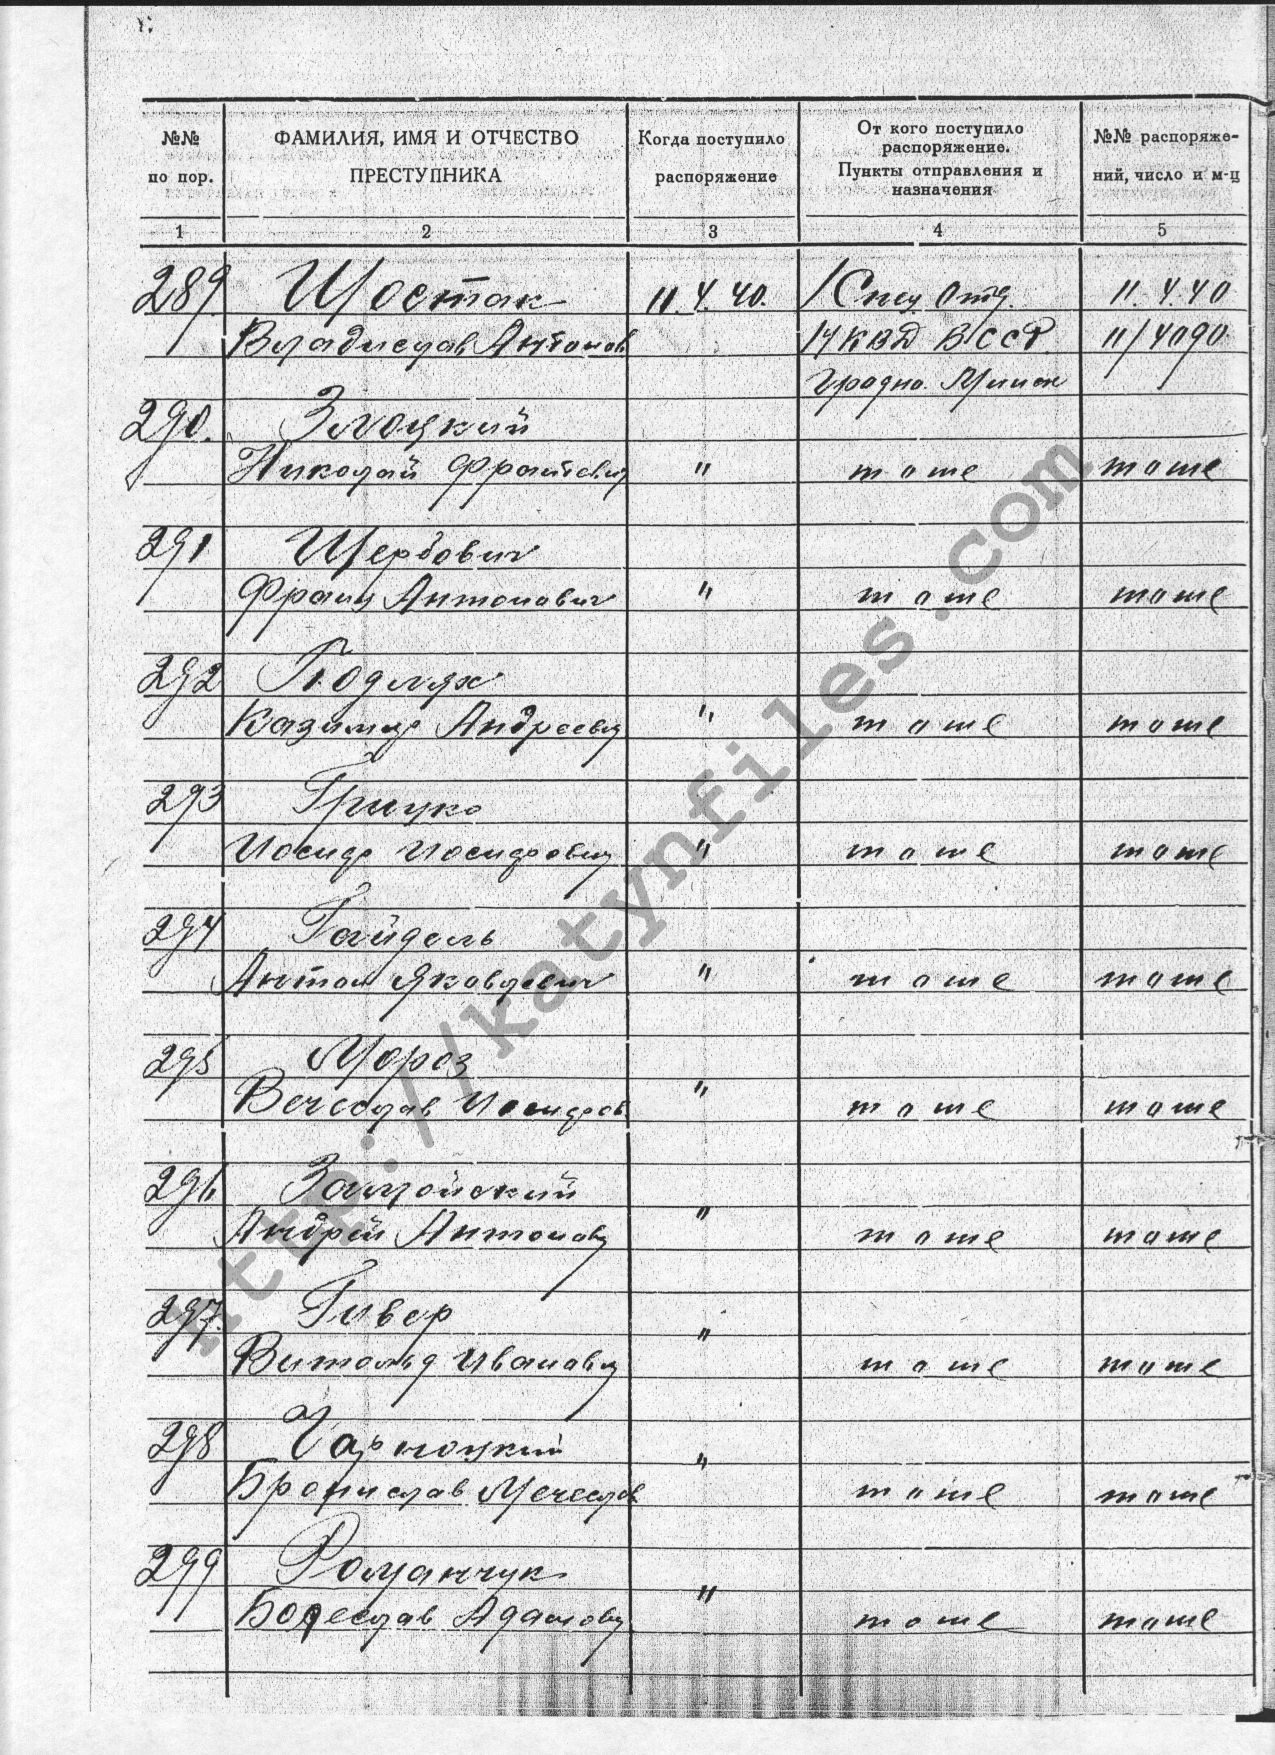 №№
по пор.
ФАМИЛИЯ, ИМЯ И ОТЧЕСТВО
ПРЕСТУПНИКА
Когда поступило
распоряжение
От кого поступило
распоряжение.
Пункты отправления и
назначения
№№ распоряже-
ний, число и м-ц
1 2 3 4 5
289. Шостак 11.4.40. 1 Спец Отд. 11.4.40
Владислав Антонов НКВД БССР. 11/4090
Гродно. Минск
290. Злоцкий
Николай Францевич " тоже тоже
291 Щербович
Франц Антонович " тоже тоже
292 Подлях
Казимир Андреевич " тоже тоже
293 Грицко
Иосиф Иосифович " тоже тоже
294 Гайдель
Антон Яковлевич " тоже тоже
295 Мороз
Вечеслав Иосифов " тоже тоже
296. Замойский
Андрей Антонович " тоже тоже
297. Гивер
Витольд Иванович " тоже тоже
298 Чарноцкий
Бронислав Мечеслов " тоже тоже
299 Романчук
Болеслав Адамович " тоже тоже
http://katynfiles.com